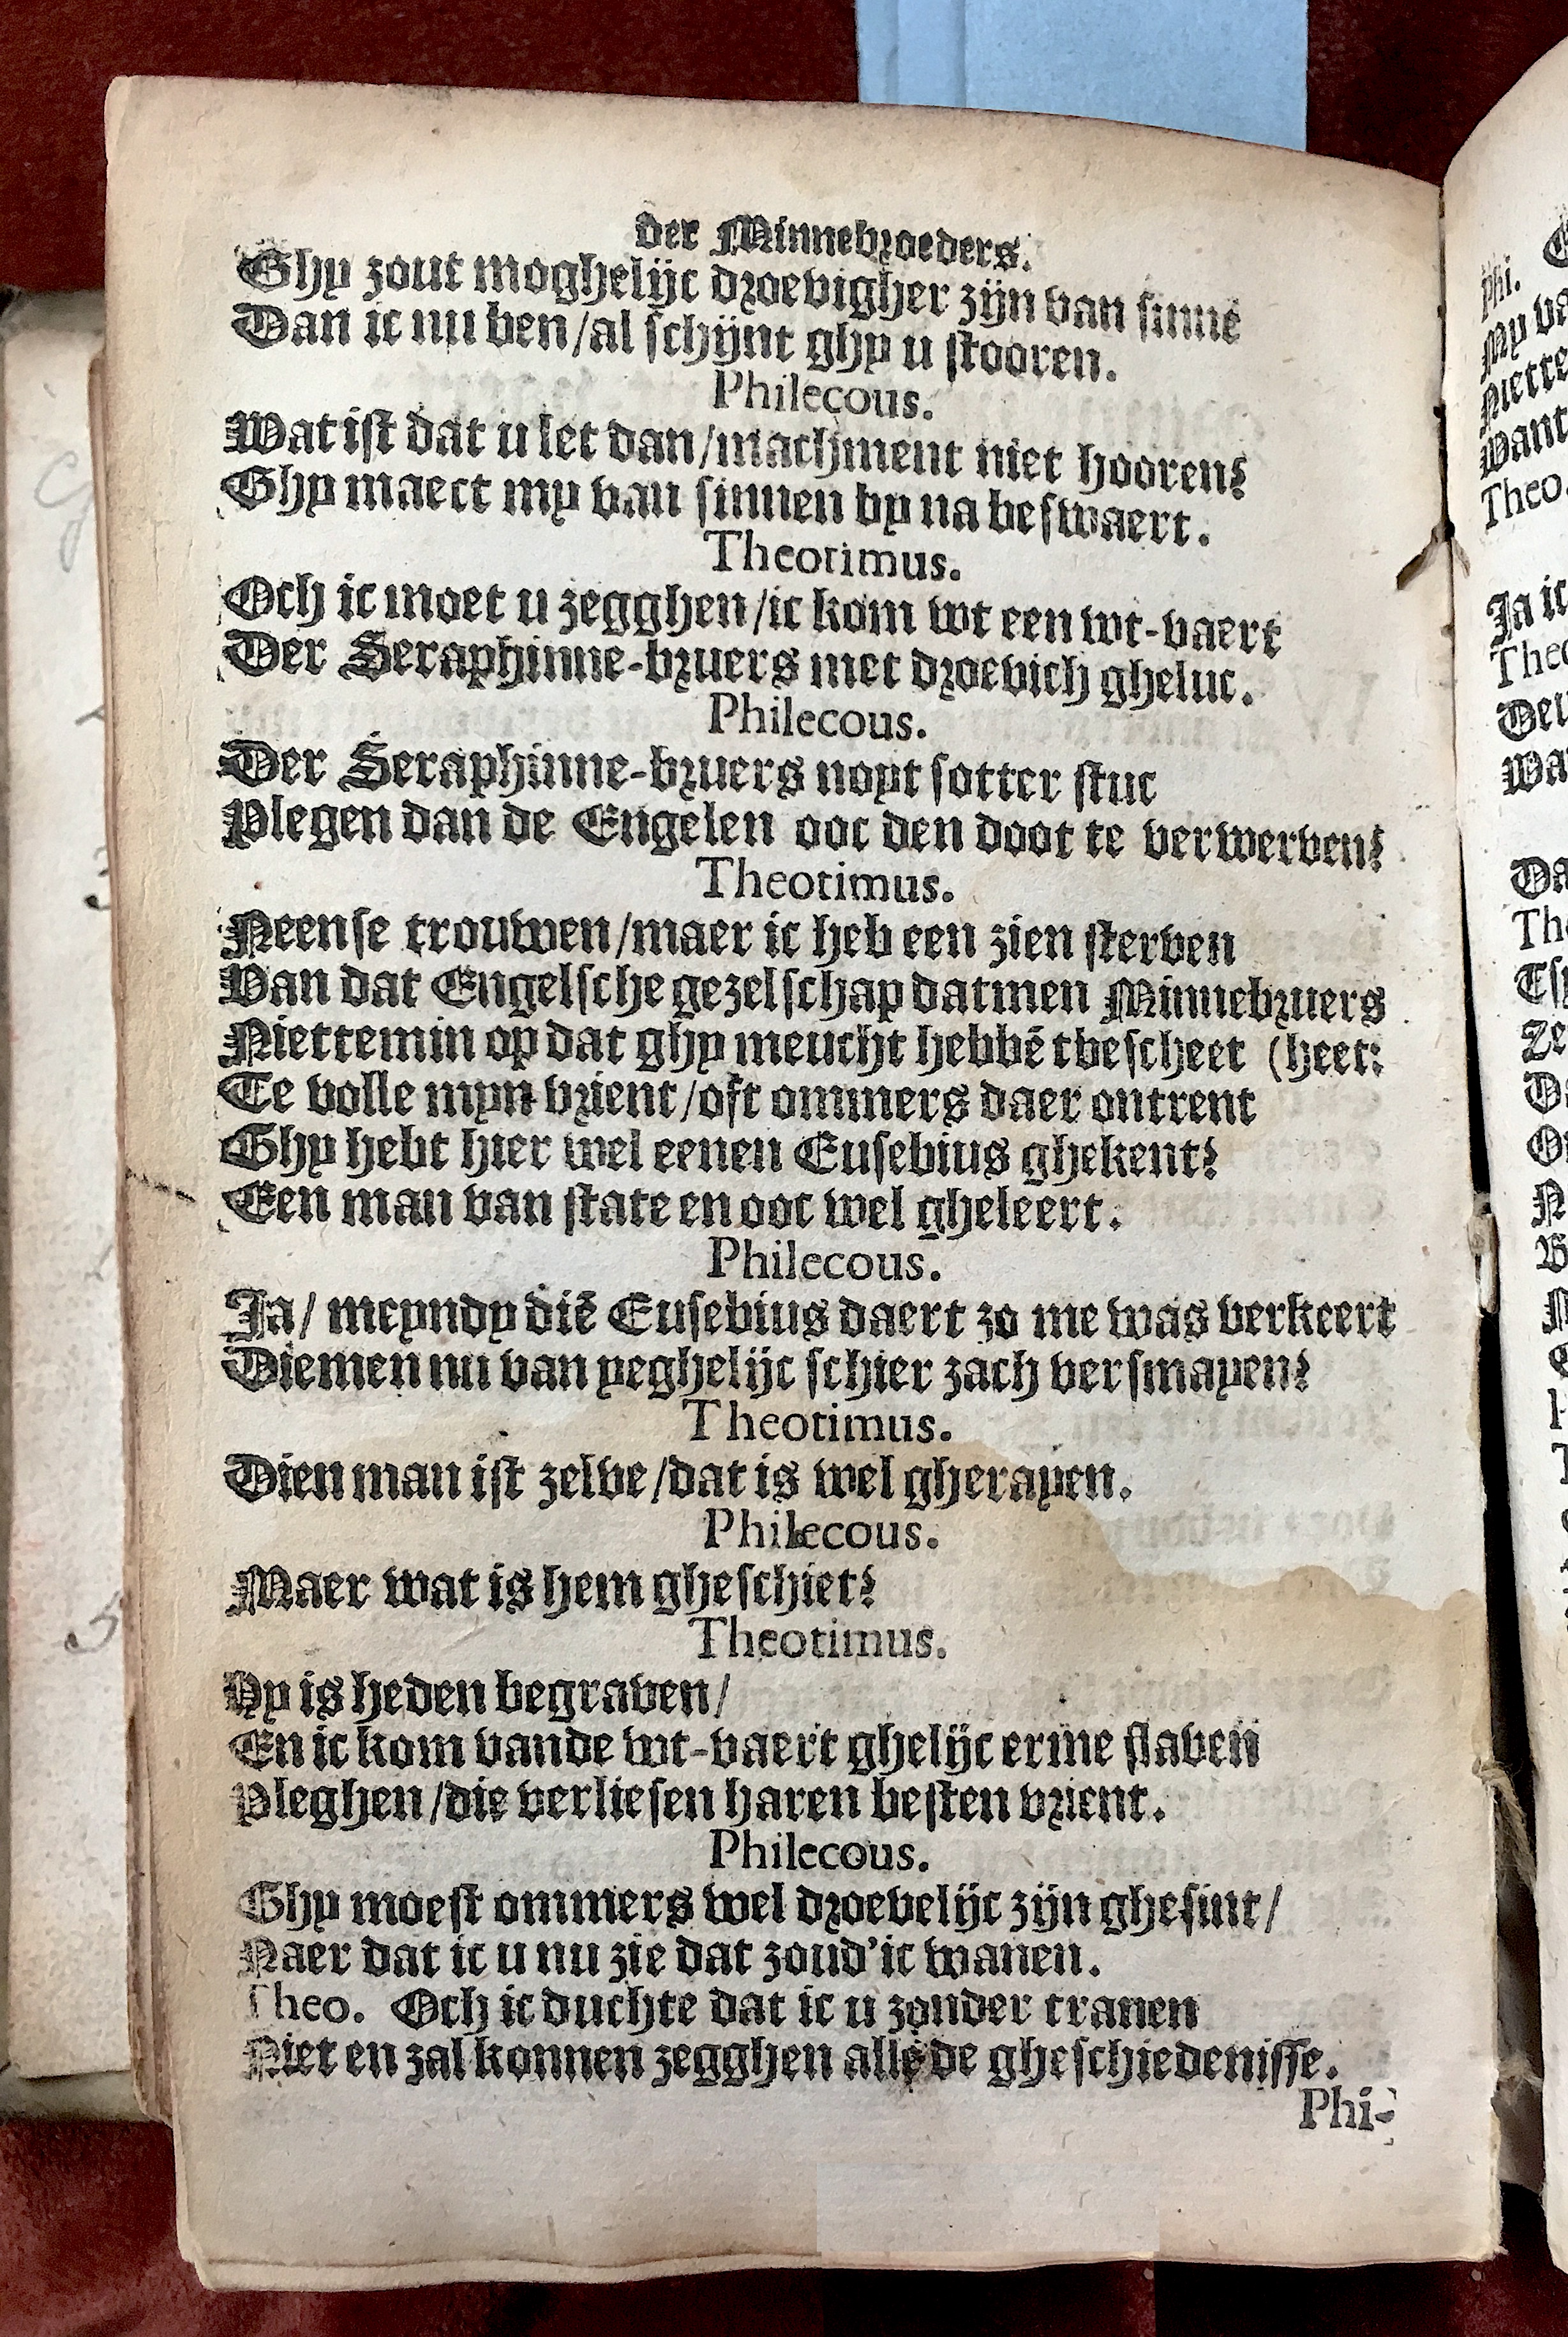 der Minnebroeders.
Ghy zout moghelijc droevigher zijn van sinnē
Dan ic nu ben/al schijnt ghy u stooren.
Philecous.
Wat ist dat u let dan/machment niet hooren?
Ghy maect my van sinnen by na beswaert.
Theotimus.
Och ic moet u zegghen/ic kom wt een wt-vaert
Der Seraphinne-bruers met droevich gheluc.
Philecous.
Der Seraphinne-bruers noyt sotter stuc
Plegen dan de Engelen ooc den doot te verwerven?
Theotimus.
Neense trouwen/maer ic heb een zien sterven
Van dat Engelsche gezelschap datmen Minnebruers
Niettemin op dat ghy meucht hebbē tbescheet (heet:
Te volle myn vrient/oft ommers daer ontrent
Ghy hebt hier wel eenen Eusebius ghekent?
Een man van state en ooc wel gheleert.
Philecous.
Ja/ meyndy diē Eusebius daert zo me was verkeert
Diemen nu van yeghelijc schier zach versmayen?
Theotimus.
Dien man ist zelve/dat is wel gherayen.
Philecous.
Maer wat is hem gheschiet?
Theotimus.
Hy is heden begraven/
En ic kom vande wt-vaert ghelijc erme slaven
Pleghen/die verliesen haren besten vrient.
Philecous.
Ghy moest ommers wel droevelijc zijn ghesint/
Naer dat ic u nu zie dat zoud'ic wanen.
Theo. Och ic duchte dat ic u zonder tranen
Niet en zal konnen zegghen alle de gheschiedenisse.
Phi-
Phi.
My va
Niette
Want
Theo.
Ja ic
Theo
Del
Wa
Da
Th